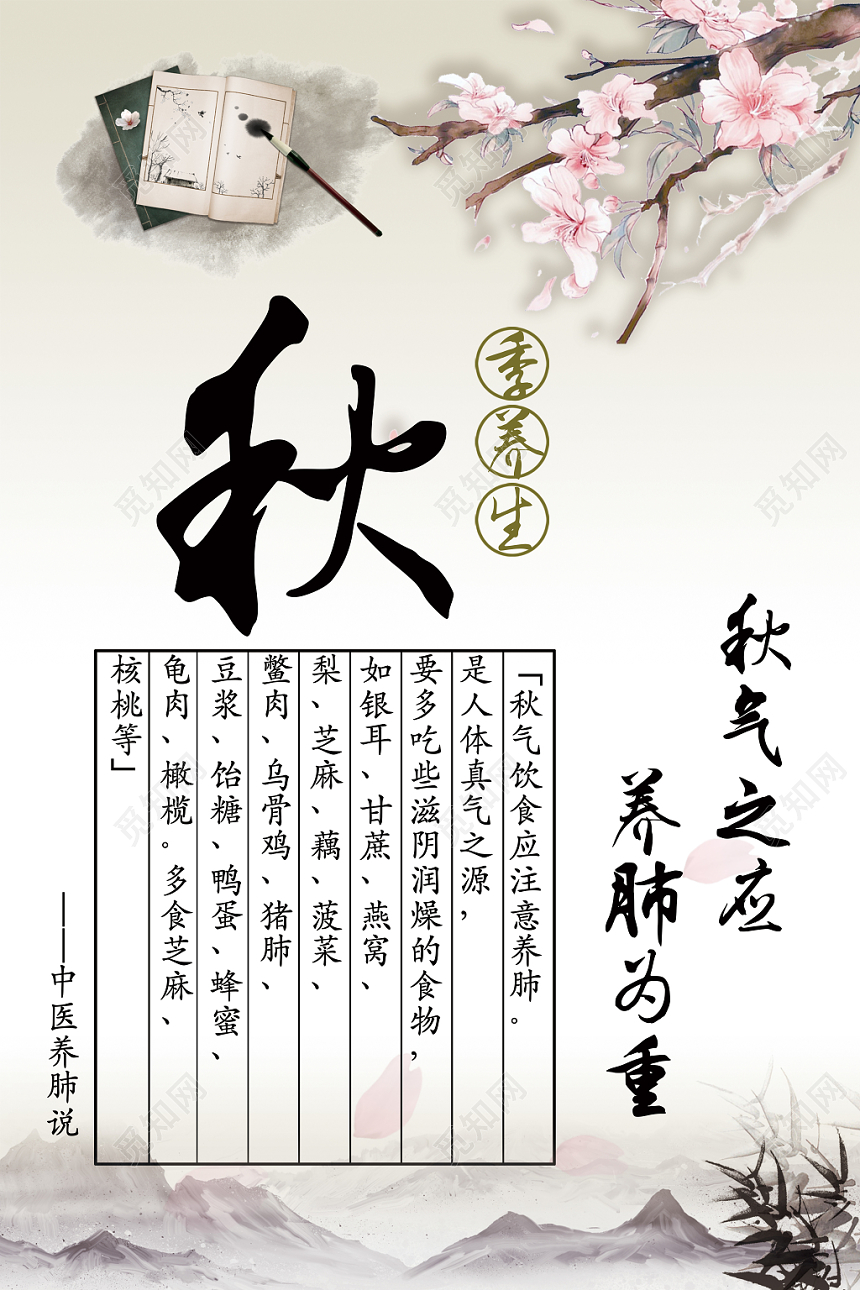 秋
季养生
秋气之应
养肺为重
「秋气饮食应注意养肺。
是人体真气之源，
要多吃些滋阴润燥的食物，
如银耳、甘蔗、燕窝、
梨、芝麻、藕、菠菜、
鳖肉、乌骨鸡、猪肺、
豆浆、饴糖、鸭蛋、蜂蜜、
龟肉、橄榄。多食芝麻、
核桃等」
——中医养肺说
觅知网